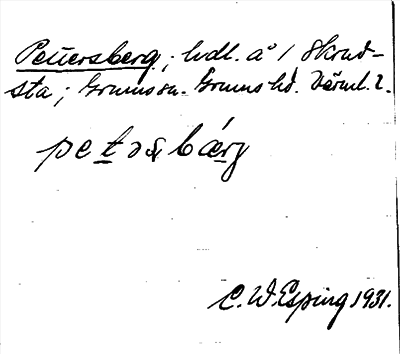 Pettersberg; hdl. å 1 Skruv-
sta; Grums sn. Grums hd. Värml. l.
petəʂbærg
C. W. Esping 1931.